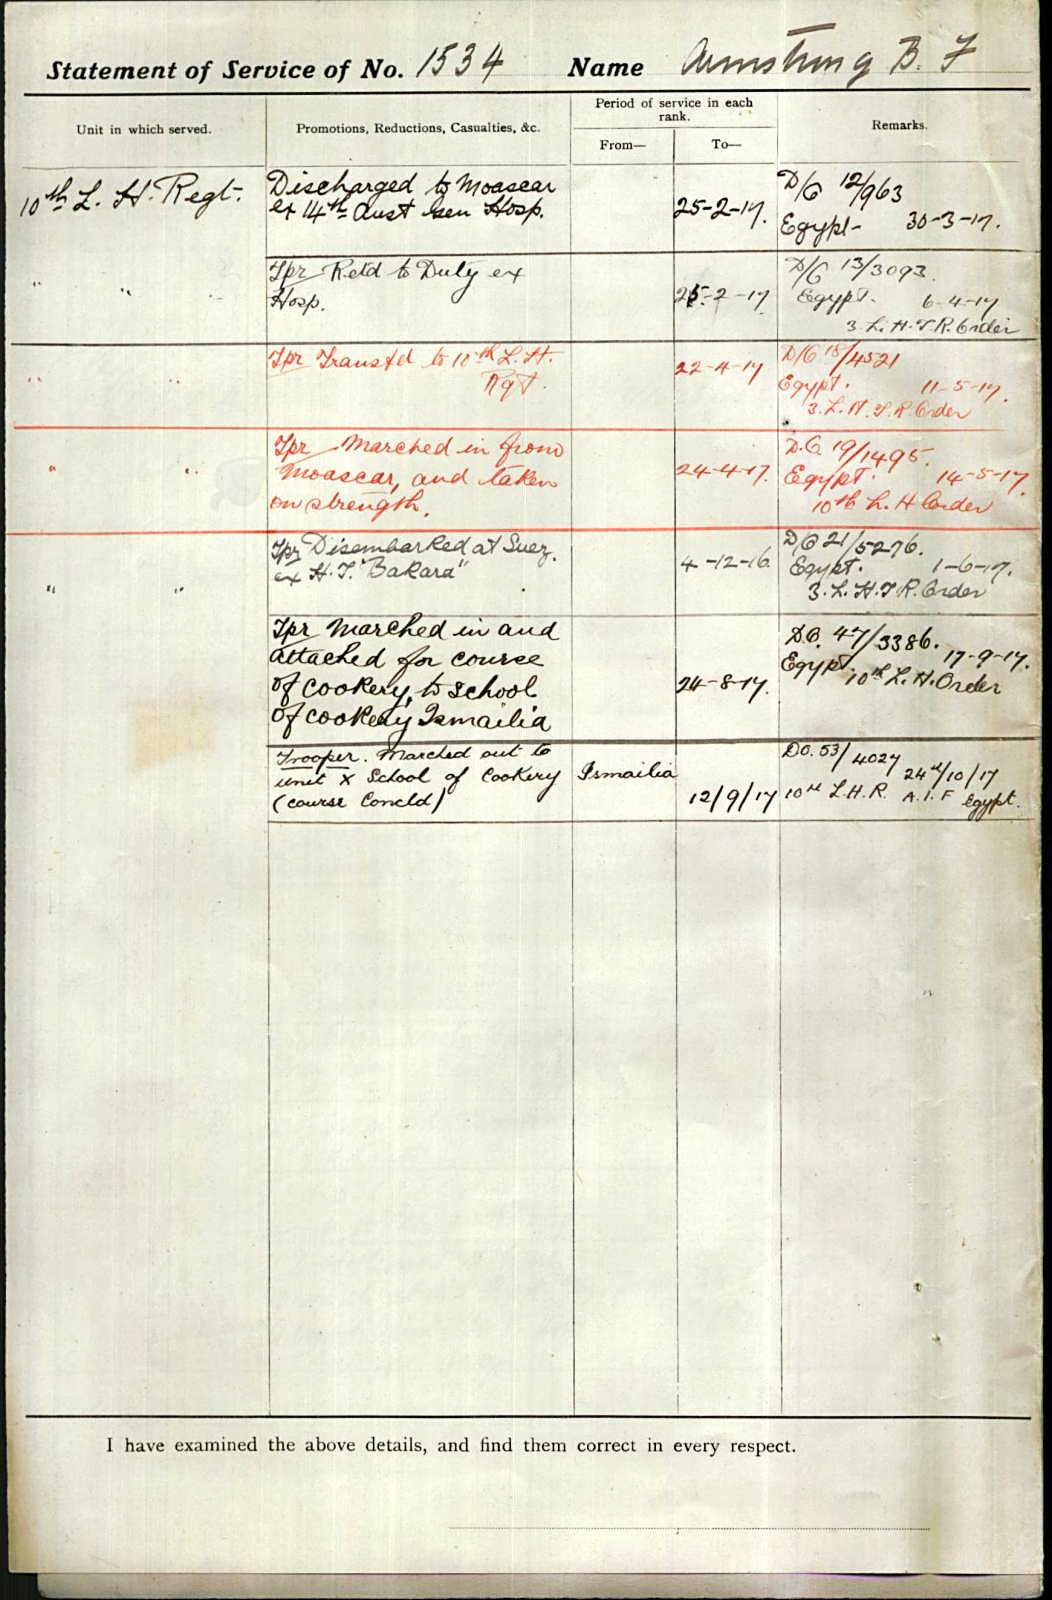 Statement of Service of No. 1534 Name Armstrong B. F
Unit in which served.
Promotions, Reductions, Casualties, &c.
Period of service in each
rank.
From—
To—
Remarks.
10th L. H. Regt.
Discharged to Moascar
ex 14th Aust Gen Hosp.
25-2-17.
D/O 12/963
Egypt- 30-3-17.
" "
Tpr Retd to Duty ex
Hosp.
25-2-17
D/O 13/3093.
Egypt. 6-4-17
3 L. H. T. R. Order
" "
Tpr Transfd to 10th L. H.
Rgt.
22-4-17
D/O 15/4521
Egypt. 11-5-17.
3. L. H. T. R. Order
" "
Tpr Marched in from
Moascar, and taken
on strength.
24-4-17.
D.O. 19/1495.
Egypt. 14-5-17.
10th L. H Order
" "
Tpr Disembarked at Suez.
ex H. T. "Bakara"
4-12-16.
D/O 21/5276.
Egypt. 1-6-17.
3. L. H. T R. Order
Tpr Marched in and
attached for course
of cookery, to School
of cookery Ismailia
24-8-17.
D.O. 47/3386.
Egypt. 17-9-17.
10th L. H. Order
Trooper. Marched out to
unit x School of Cookery
(course Concld)
Ismailia
12/9/17
DO. 53/4027
24th/10/17
10th L. H. R. A. I. F Egypt.
I have examined the above details, and find them correct in every respect.